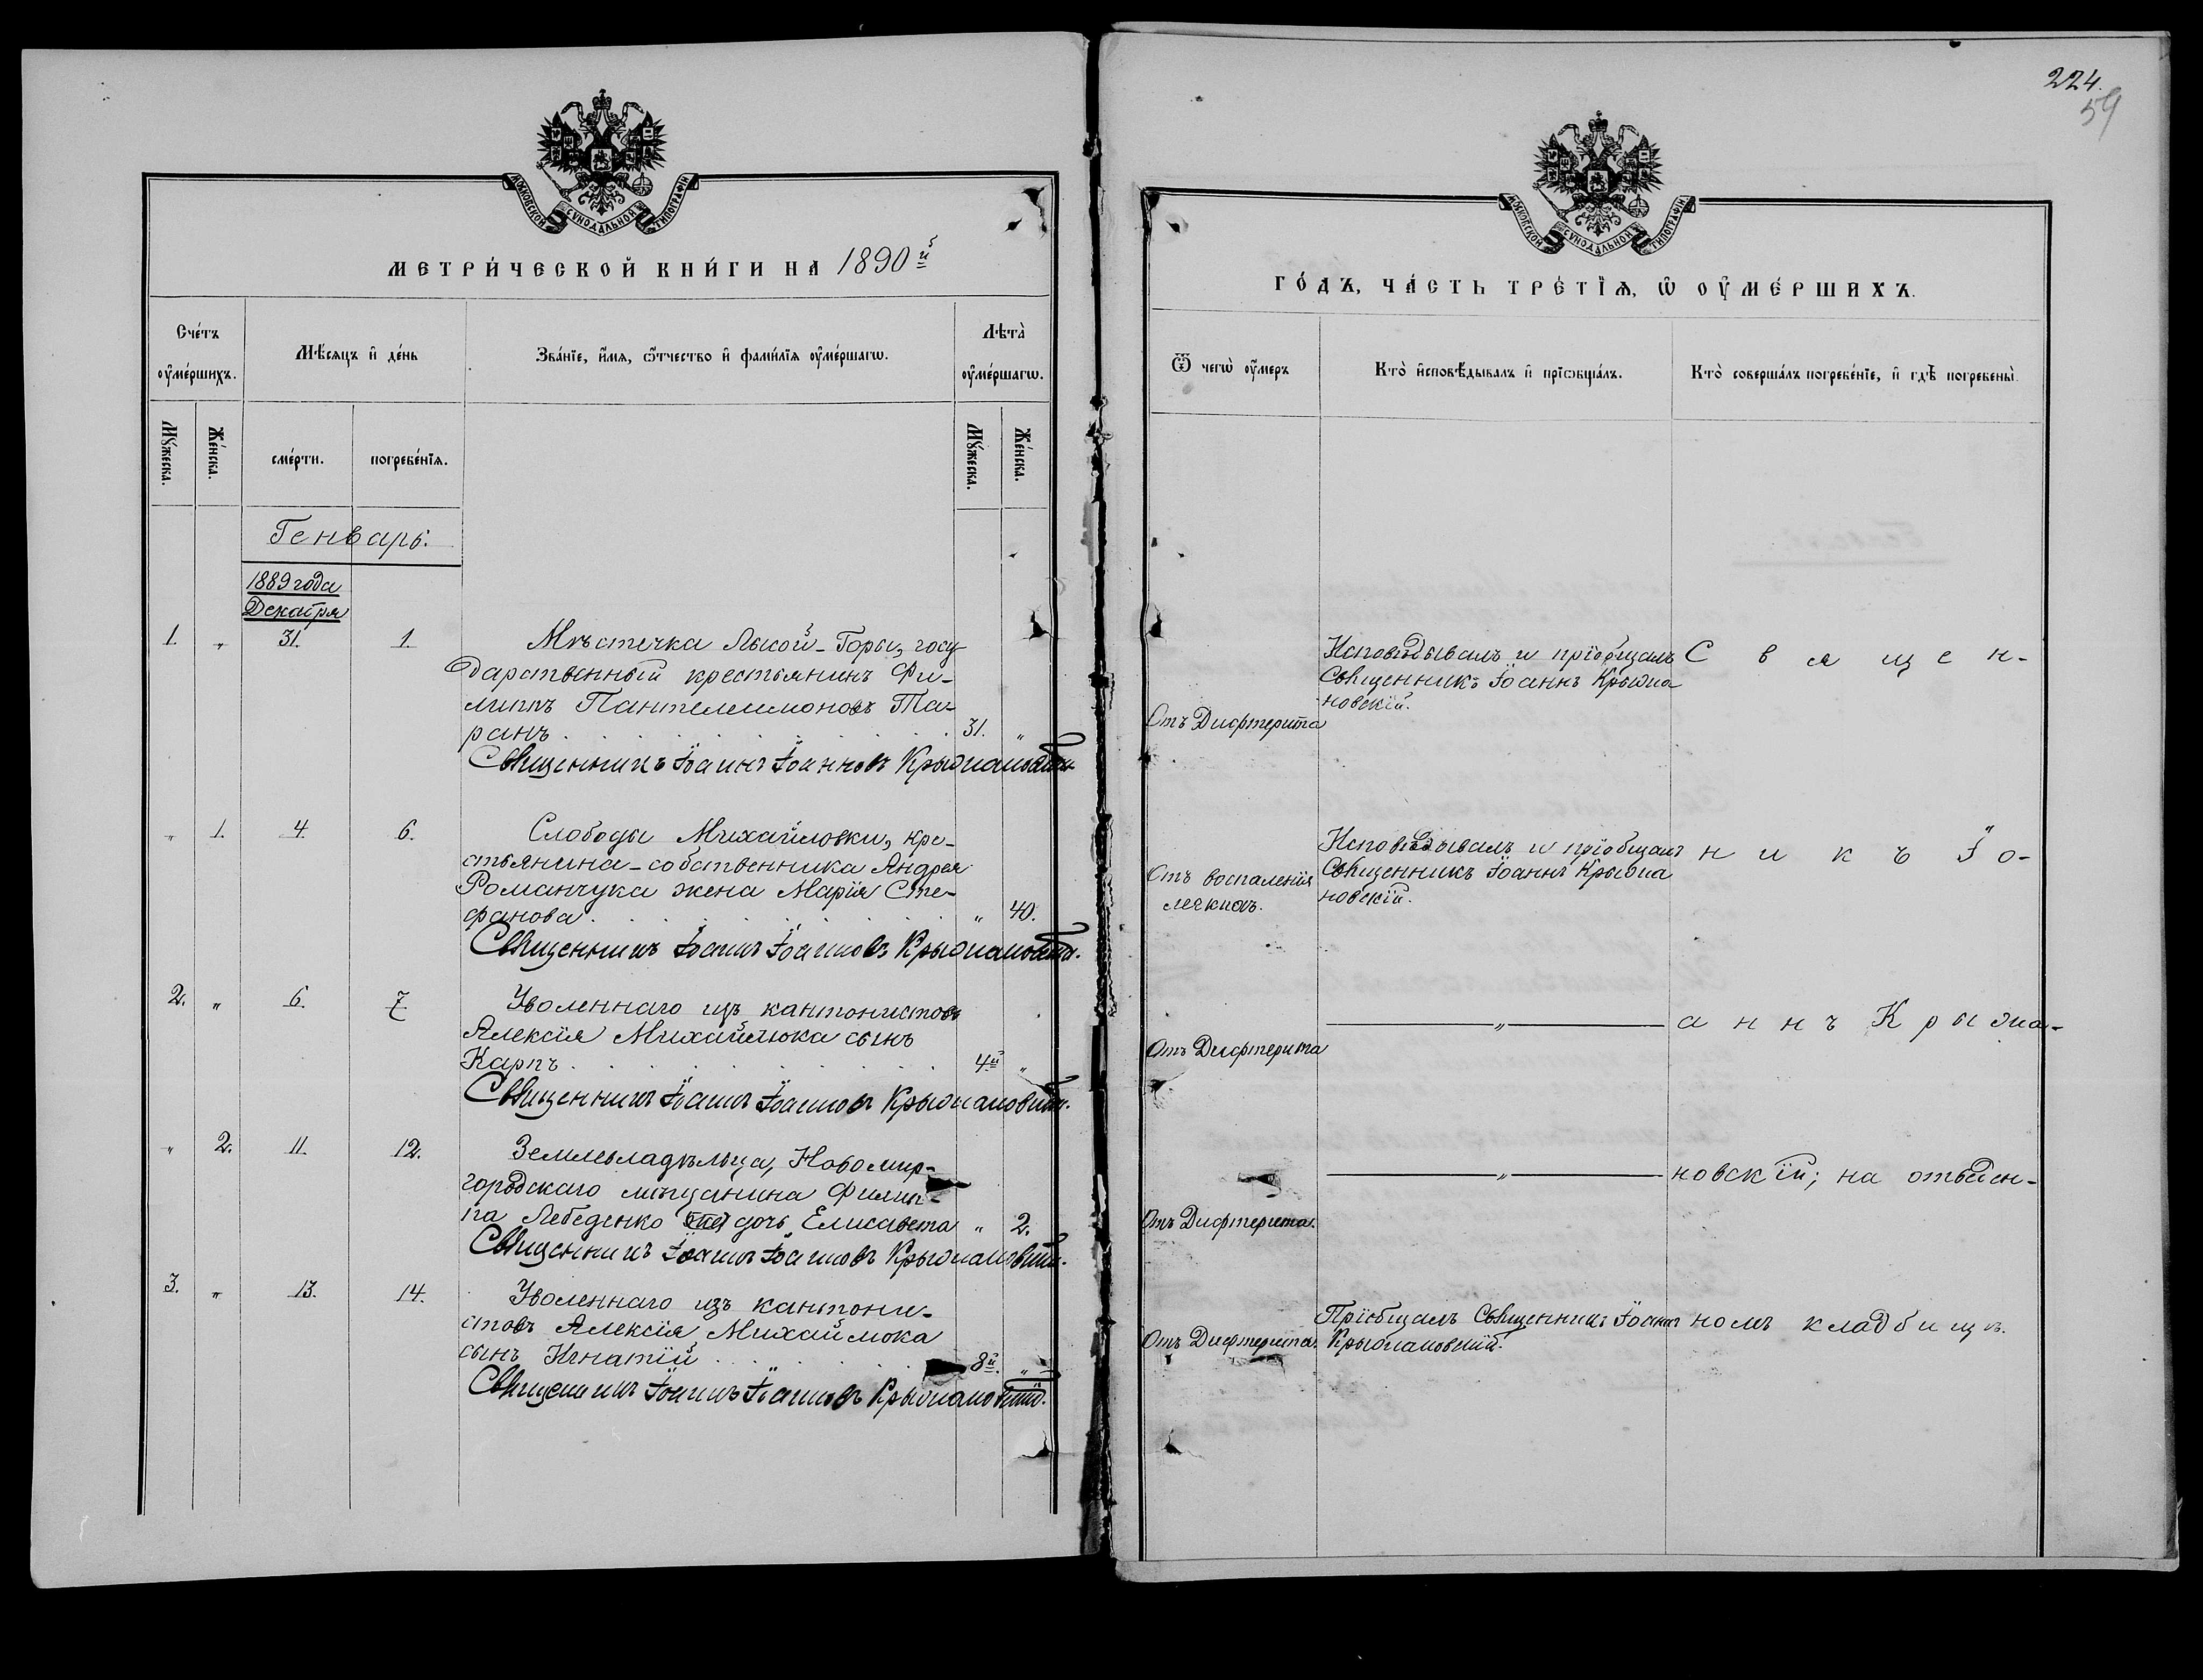 224.
59
МОСКОВСКОЙ СѴНОДАЛЬНОЙ ТИПОГРАФІИ
МЕТРИ́ЧЕСКОЙ КНИ́ГИ НА 1890й
Сче́тъ ᲂу҆ме́ршихъ.
Мѣ́сяцъ и҆ де́нь
Зва́нїе, и҆́мя, ѻ҆́тчество и҆ фами́лїя ᲂу҆ме́ршагѡ.
Лѣта̀ ᲂу҆ме́ршагѡ.
Мꙋ́жеска.
Же́нска.
сме́рти.
погребе́нїѧ.
Мꙋ́жеска.
Же́нска.
Генварь.
1889 года
Декабря
1. „ 31. 1. Мѣстечка Лысой-Горы, госу-
дарственный крестьянинъ Фи-
липпъ Пантелеимоновъ Та-
ранъ. 31. „
Священникъ Іоаннъ Іоанновъ Крыжановскій.
„ 1. 4. 6. Слободы Михайловки, кре-
стьянина-собственника Андрея
Романчука жена Марія Сте-
фанова. „ 40.
Священникъ Іоаннъ Іоанновъ Крыжановскій.
2. „ 6. 7. Уволеннаго изъ кантонистовъ
Алексія Михайлюка сынъ
Карпъ. 4й „
Священникъ Іоаннъ Іоанновъ Крыжановскій.
„ 2. 11. 12. Землевладѣльца, Новомир-
городскаго мѣщанина Филип-
па Лебеденко дочь Елисавета „ 2.
Священникъ Іоаннъ Іоанновъ Крыжановскій.
3. „ 13. 14. Уволеннаго изъ кантони-
стовъ Алексія Михайлюка
сынъ Игнатій. 8й. „
Священникъ Іоаннъ Іоанновъ Крыжановскій.
МОСКОВСКОЙ СѴНОДАЛЬНОЙ ТИПОГРАФІИ
ГО́ДЪ, ЧА́СТЬ ТРЕ́ТЇѦ, Ѡ҆ ОУ҆МЕ́РШИХЪ.
Ѿ чегѡ̀ ᲂу҆́меръ
Кто̀ и҆сповѣ́дывалъ и҆ прїѡбща́лъ.
Кто̀ соверша́лъ погребе́нїе, и҆ гдѣ̀ погребены̀.
Отъ Дифтерита
Исповѣдывалъ и пріобщалъ
Священникъ Іоаннъ Крыжа-
новскій.
Священ-
Отъ воспаленія
легкихъ.
Исповѣдывалъ и пріобщалъ
Священникъ Іоаннъ Крыжа
новскій.
никъ Іо-
Отъ Дифтерита
„
аннъ Крыжа-
Отъ Дифтерита.
„
новскій; на отведен-
Отъ Дифтерита.
Пріобщалъ Священникъ Іоаннъ
Крыжановскій.
номъ кладбищѣ.